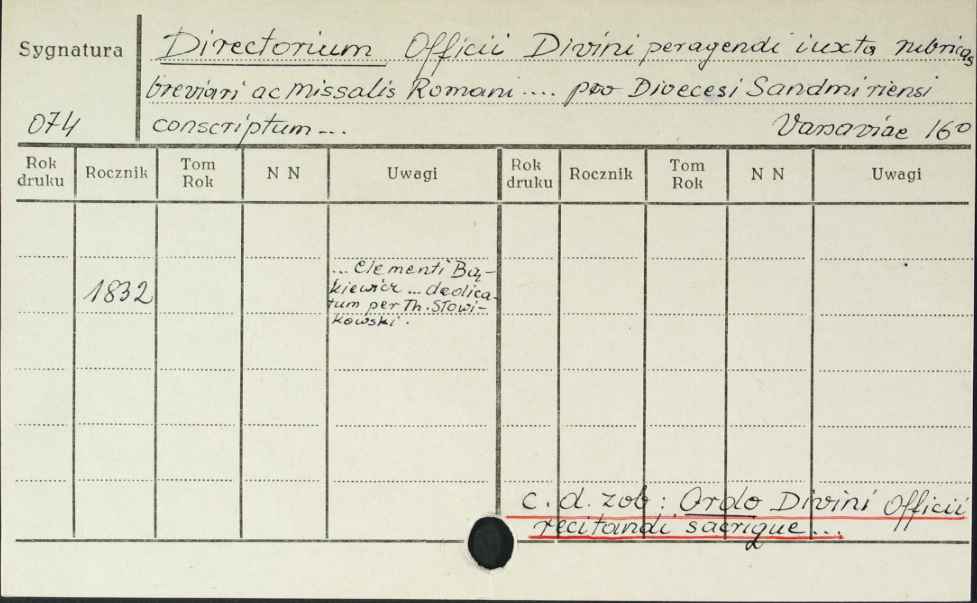 Sygnatura
074
Directorium Officii Divini peragendi iuxta rubricas
breviari ac Missalis Romani .... pro Dioecesi Sandmiriensi
conscriptum ... Varsaviae 16°
Rok druku Rocznik Tom Rok N N Uwagi Rok druku Rocznik Tom Rok N N Uwagi
1832
... Clementi Bą-
kiewicz ... dedica-
tum per Th. Słowi-
kowski.
c. d. zob: Ordo Divini Officii
recitandi sacrique...